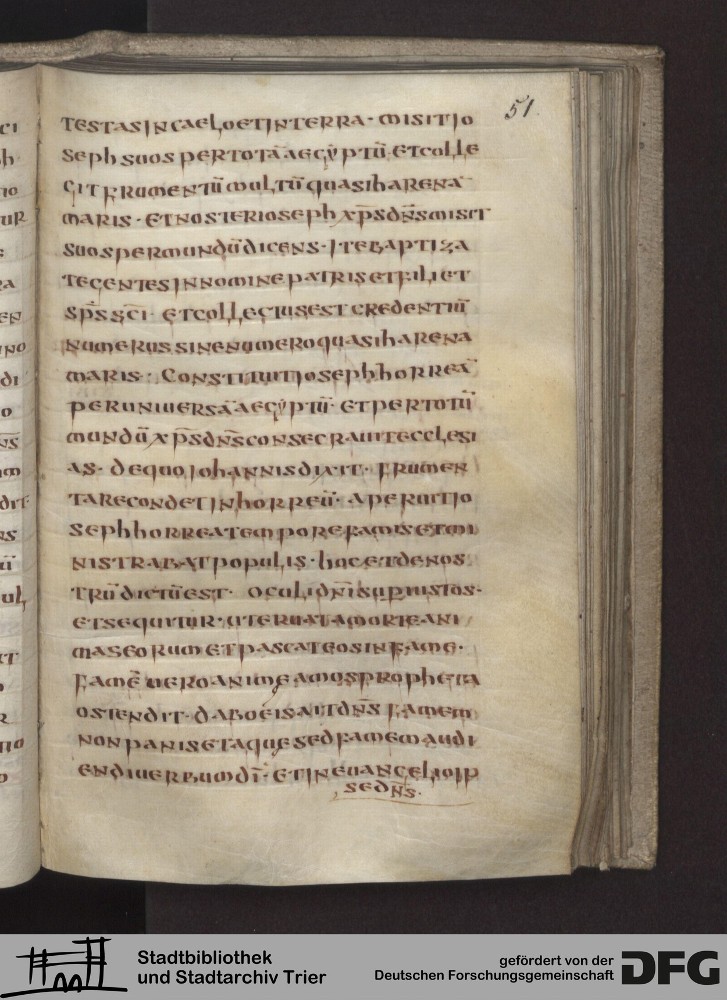 51
TESTAS IN CAELO ET IN TERRA · MISIT IO
SEPH SUOS PER TOTĀ AEGYPTŪ · ET COLLE
GIT FRUMENTŪ MULTŪ QUASI HARENĀ
MARIS · ET NOSTER IOSEPH XP̄S DN̄S MISIT
SUOS PER MUNDŪ DICENS · ITE BAPTIZA
TE GENTES IN NOMINE PATRIS ET FILI ET
SP̄S SC̄I · ET COLLECTUS EST CREDENTIŪ
NUMERUS SINE NUMERO QUASI HARENA
MARIS · CONSTITUIT IOSEPH HORREA
PER UNIUERSĀ AEGYPTŪ · ET PER TOTŪ
MUNDŪ XP̄S DN̄S CONSECRAUIT ECCLESI
AS · DE QUO IOHANNIS DIXIT · FRUMEN
TA RECONDET IN HORREŪ · APERUIT IO
SEPH HORREA TEMPORE FAMIS ET MI
NISTRABAT POPULIS · HOC ET DE NOS
TRŪ DICTŪ EST · OCULI DN̄I SUPER IUSTOS ·
ET SEQUITUR · UT ERUAT A MORTE ANI
MAS EORUM ET PASCAT EOS IN FAME ·
FAMĒ UERO ANIME AMOS PROPHETA
OSTENDIT · DABO EIS AIT DN̄S FAMEM
NON PANIS ET AQUE SED FAMEM AUDI
ENDI UERBUM DĪ · ET IN EUANGELIO IP
SE DN̄S ·
CI
H
IO
UR
RA
EN
INO
DI
O
N̄S
M
DIT
NS
Ū
UL
T
O
R
TIO
O
Stadtbibliothek
und Stadtarchiv Trier
gefördert von der
Deutschen Forschungsgemeinschaft
DFG